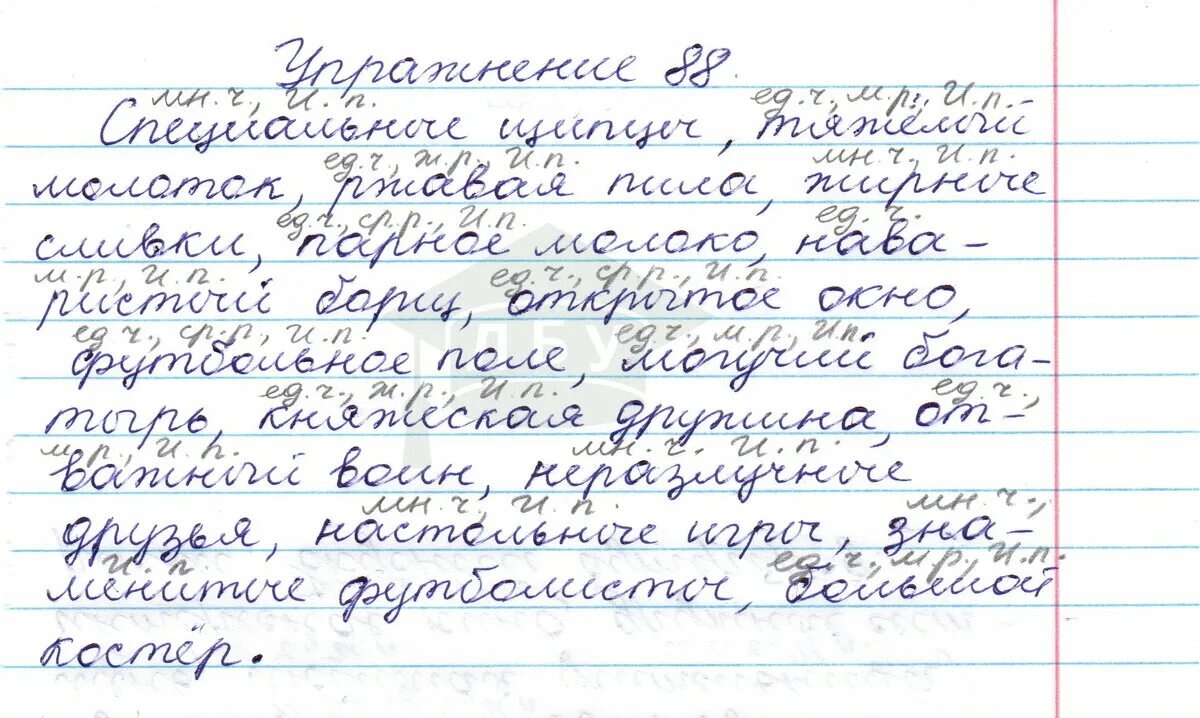 Упражнение 88.
мн.ч., И.п. ед.ч., м.р., И.п.
Специальные щипцы, тяжёлый
ед.ч., ж.р., И.п. мн.ч., И.п.
молоток, ржавая пила, жирные
ед.ч., ср.р., И.п. ед.ч.
сливки, парное молоко, нава-
м.р., И.п. ед.ч., ср.р., И.п.
ристый борщ, открытое окно,
ед.ч., ср.р., И.п. ед.ч., м.р., И.п.
футбольное поле, могучий бога-
ед.ч., ж.р., И.п. ед.ч.,
тырь, княжеская дружина, от-
м.р., И.п. мн.ч. И.п.
важный воин, неразлучные
мн.ч., И.п. мн.ч.,
друзья, настольные игры, зна-
И.п. ед.ч., м.р., И.п.
менитые футболисты, большой
костёр.
ЛБУ